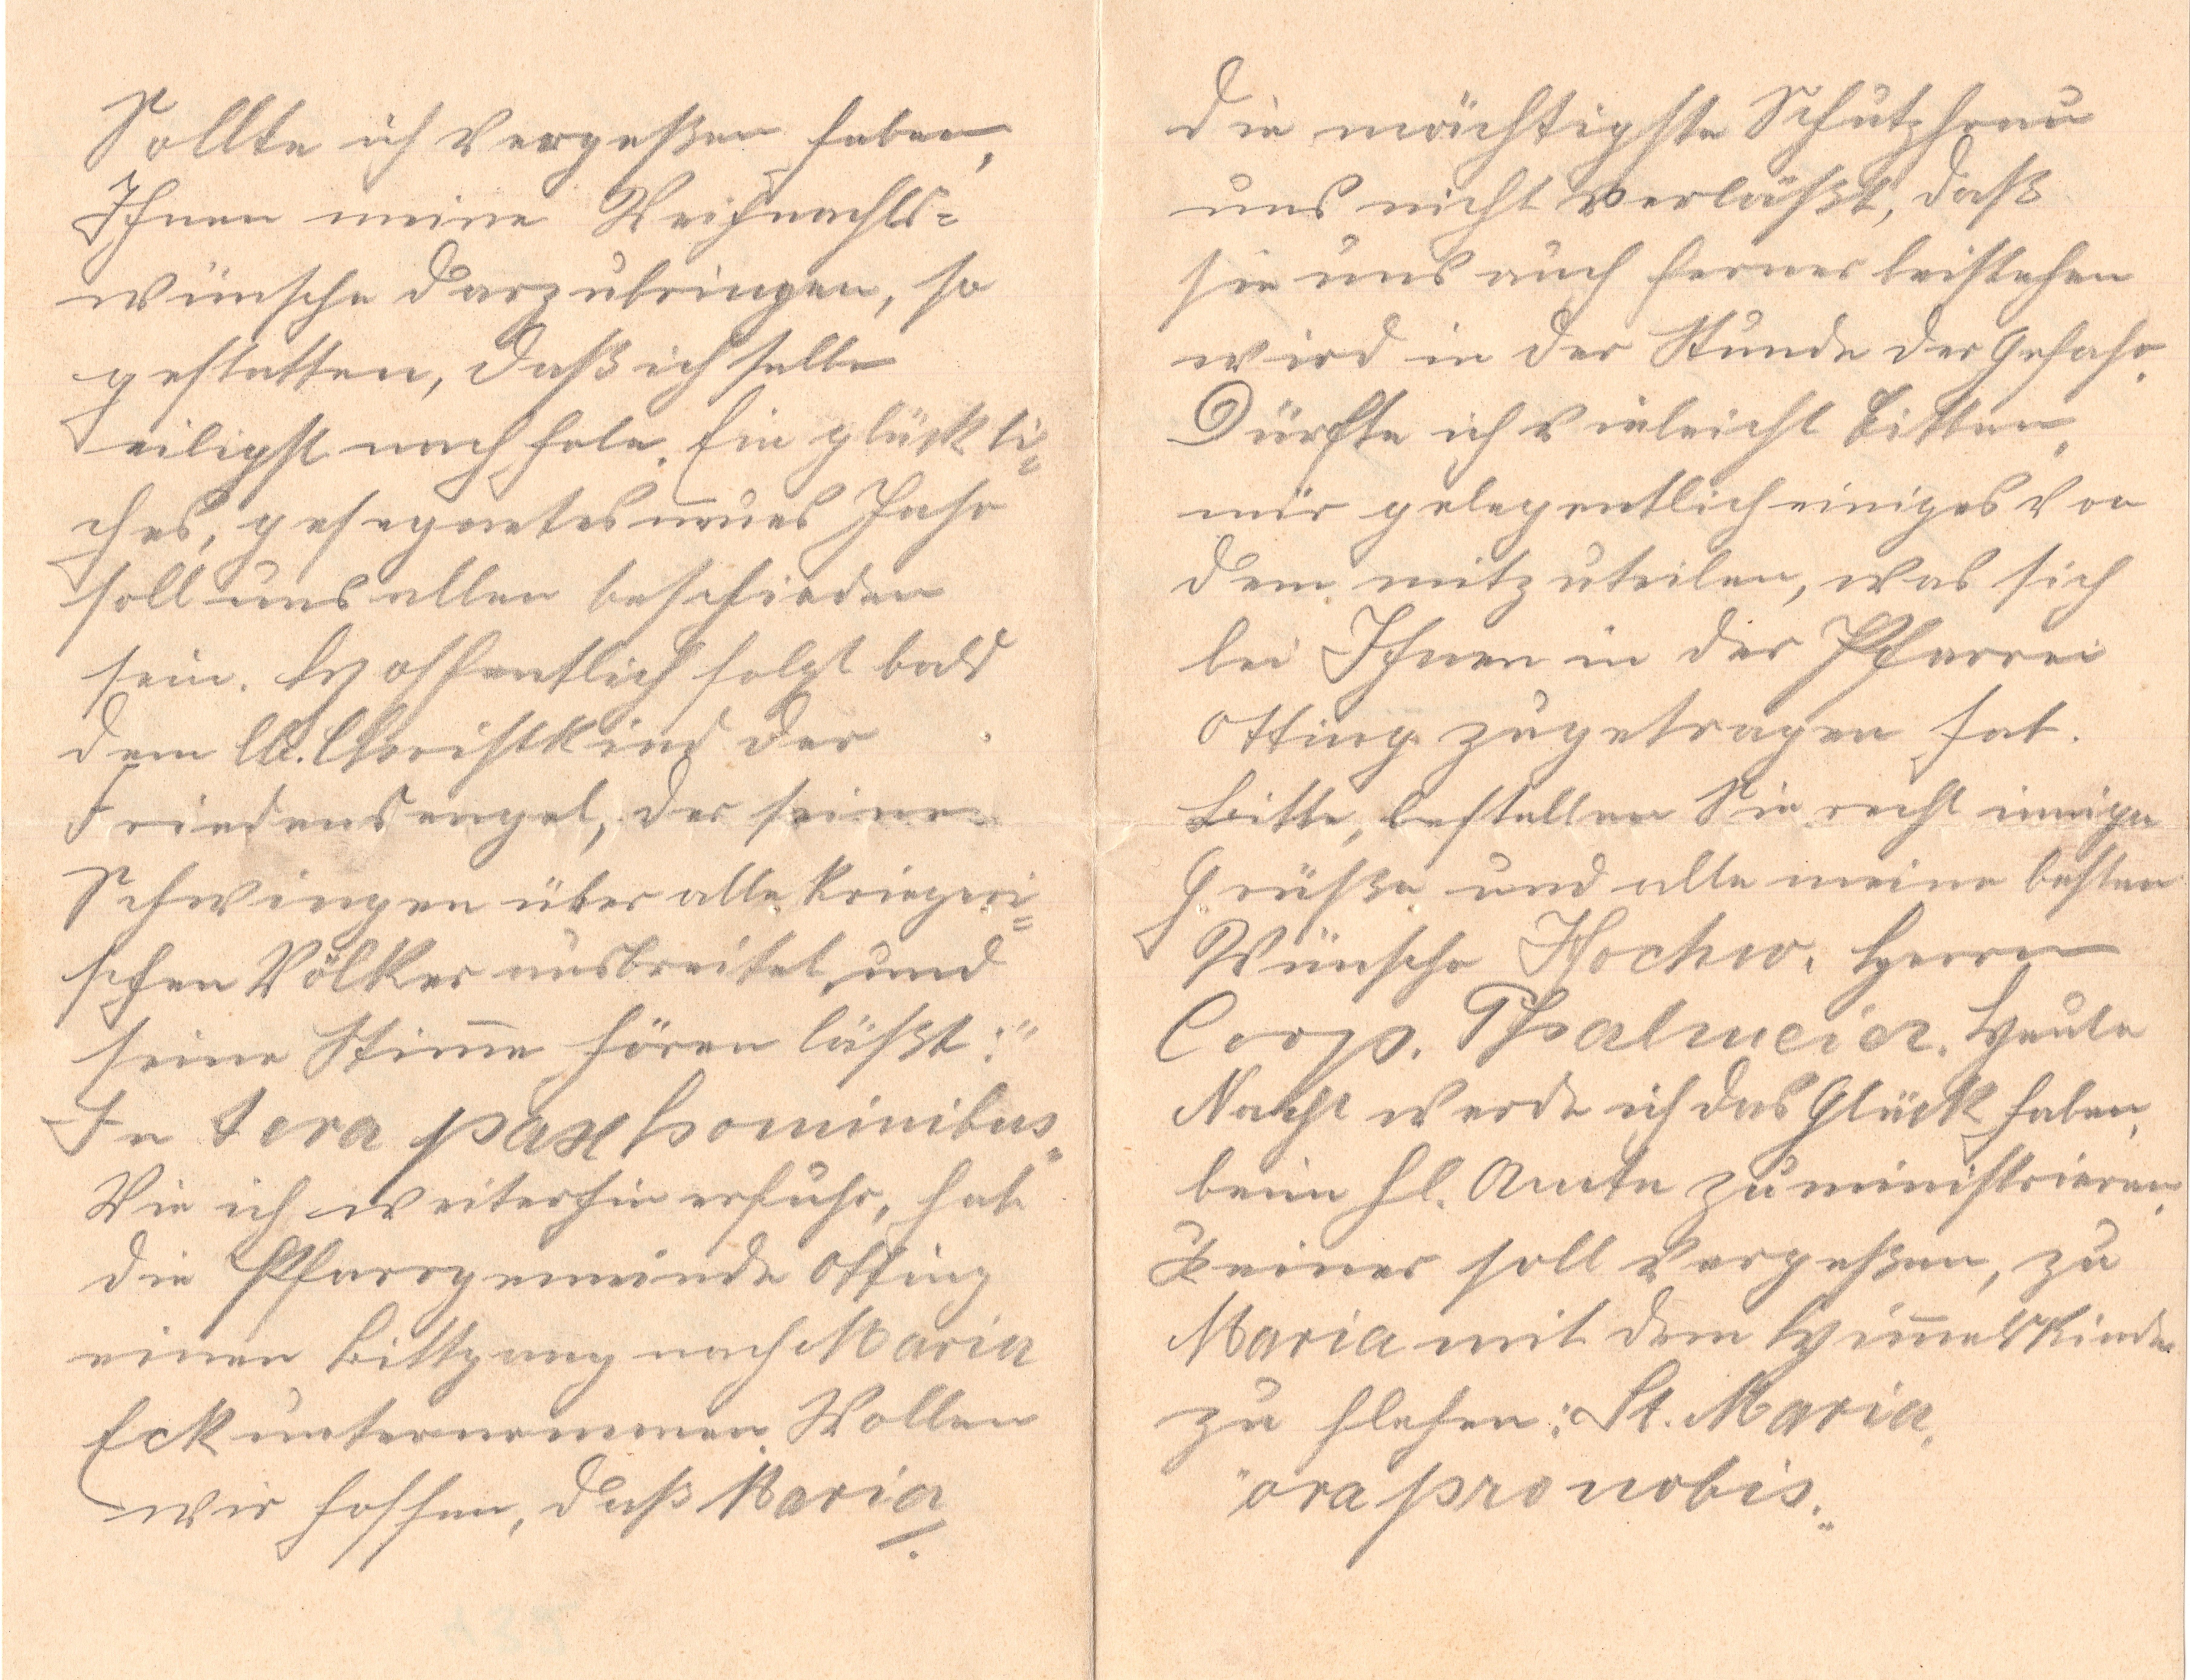 Sollte ich vergeßen haben,
Ihnen meine Weihnachts=
wünsche darzubringen, so
gestatten, daß ich selbe
eiligst nachhole. Ein glückli=
ches, gesegnetes neues Jahr
soll uns allen beschieden
sein. Hoffentlich folgt bald
dem lb. Christkind der
Friedensengel, der seine
Schwingen über alle kriegeri=
schen Völker ausbreitet und
seine Stimme hören läßt:"
In tera pax hominibus."
Wie ich weiterhin erfuhr, hat
die Pfarrgemeinde Otting
einen Bittgang nach Maria
Eck unternommen. Wollen
wir hoffen, daß Maria
die mächtigste Schutzfrau
uns nicht verläßt, daß
sie uns auch ferner beistehen
wird in der Stunde der Gefahr.
Dürfte ich vieleicht bitten,
mir gelegentlich einiges von
dem mitzuteilen, was sich
bei Ihnen in der Pfarrei
Otting zugetragen hat.
Bitte, bestellen Sie recht innige
Grüße und alle meine besten
Wünsche Hochw. Herrn
Coop. Psalmeier. Heute
Nacht werde ich das Glück haben,
beim hl. Amte zu ministrieren.
Keiner soll vergeßen, zu
Maria mit dem Himmelskinde
zu flehen: St. Maria,
"ora pro nobis."